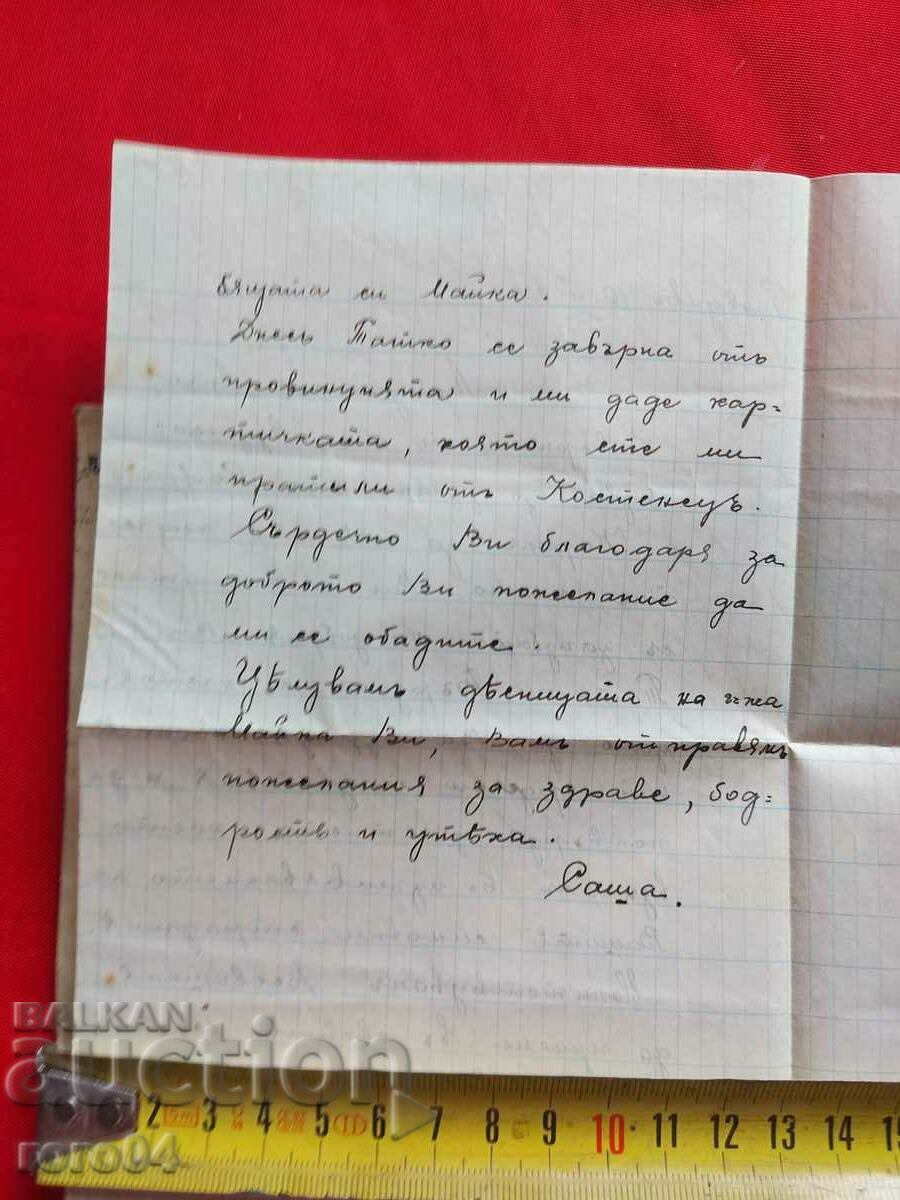 бящата си Майка.
Днесь Татко се завърна отъ
провинцията и ми даде кар=
тичката, която сте ми
пратили от Костенецъ.
Сърдечно Ви благодаря за
доброто Ви пожелание да
ми се обадите.
Цѣлувамъ дѣсницата на г-жа
Майка Ви, Вамъ отправямъ
пожелания за здраве, бод=
рость и утѣха.
Саша.
BALKAN
auction
roro04
2 3 4 5 6 7 8 9 10 11 12 13 14 15